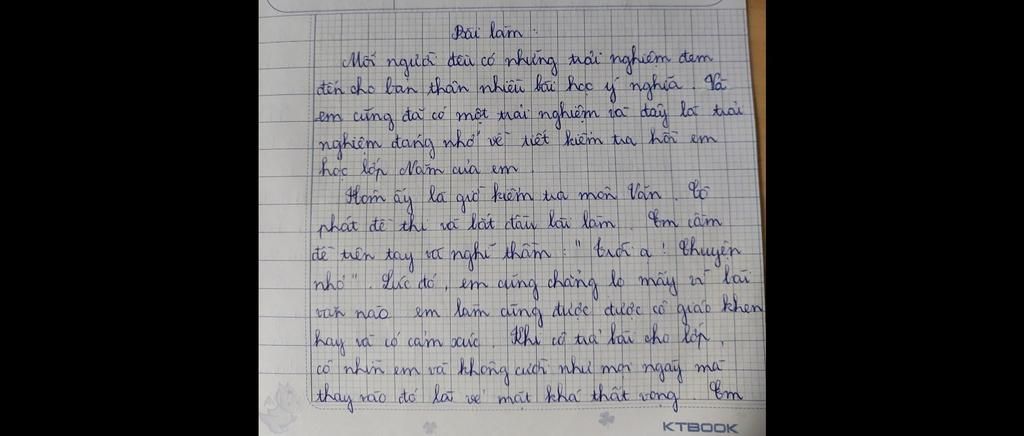 Bài làm.
Mỗi người đều có những trải nghiệm đem
đến cho bản thân nhiều bài học ý nghĩa. Và
em cũng đã có một trải nghiệm và đây là trải
nghiệm đáng nhớ về tiết kiểm tra hồi em
học lớp Năm của em.
Hôm ấy là giờ kiểm tra môn Văn. Cô
phát đề thi và bắt đầu bài làm. Em cầm
đề trên tay và nghĩ thầm: "Trời ạ! Chuyện
nhỏ". Lúc đó, em cũng chẳng lo mấy vì bài
văn nào em làm cũng được được cô giáo khen
hay và có cảm xúc. Khi cô trả bài cho lớp,
cô nhìn em và không cười như mọi ngày mà
thay vào đó là vẻ mặt khá thất vọng. Em
KTBOOK